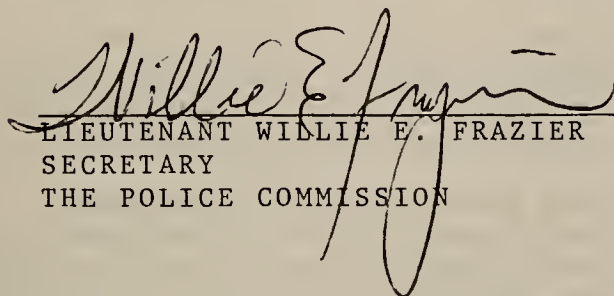 Willie E Frazier
LIEUTENANT WILLIE E. FRAZIER
SECRETARY
THE POLICE COMMISSION